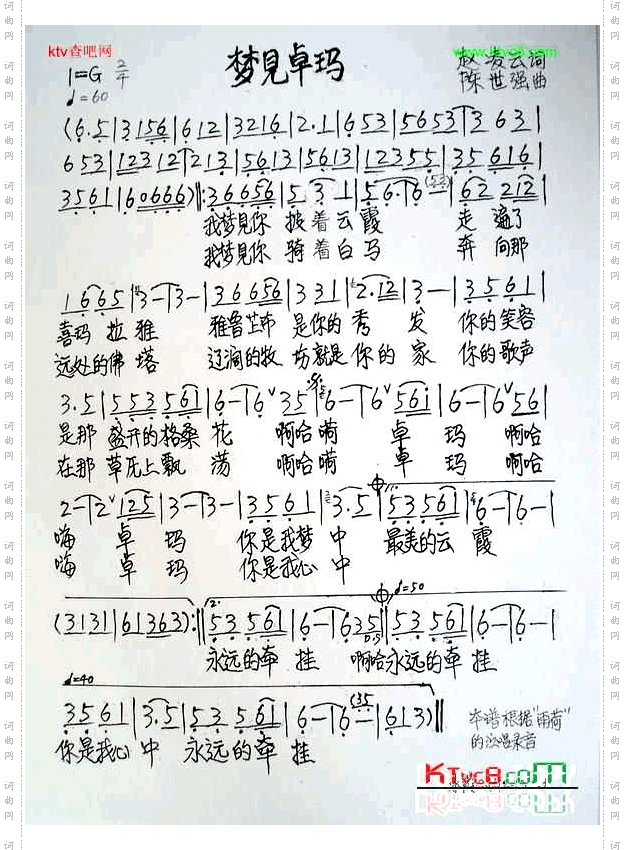 ktv查吧网
www.ktvc8.com
梦見卓玛
1=G 2/4
♩=60
赵凌云词
陈世强曲
(6.5|3156|612|3216|2.1|653|5653|3 63|
653|12312|213|5613|5613|12355|35616|
3561|60666)‖:366656|5 3 1|56.|6(53)|62 212|
我梦見你 披着云霞 走 遍了
我梦見你 骑着白马 奔 向那
1665|3-|3-|36656|331|2.12|3-|3561|
喜玛拉雅 雅鲁芷布 是你的秀 发 你的笑容
远处的佛塔 辽阔的牧 场就是你的家 你的歌声
3.5|553561|6-|6 35|6-|6 561|6-|6 56|
是那盛开的格桑花 啊哈嗬 卓 玛 啊哈
在那草厡上飘 荡 啊哈嗬 卓 玛 啊哈
2-|2 125|3-|3-|3561|3.5|53561|6-|6-|
嗨 卓 玛 你是我梦中 最美的云 霞
嗨 卓 玛 你是我心中
♩=50
(3131|61363):‖53561|6-|635|53561|6-|6-|
永远的牵 挂 啊哈永远的牵 挂
♩=40
3561|3.5|53561|6-|6(35|613)‖
你是我心中 永远的牵 挂
本谱根据"雨荷"
的演唱录音
KTvc8.com
词曲网